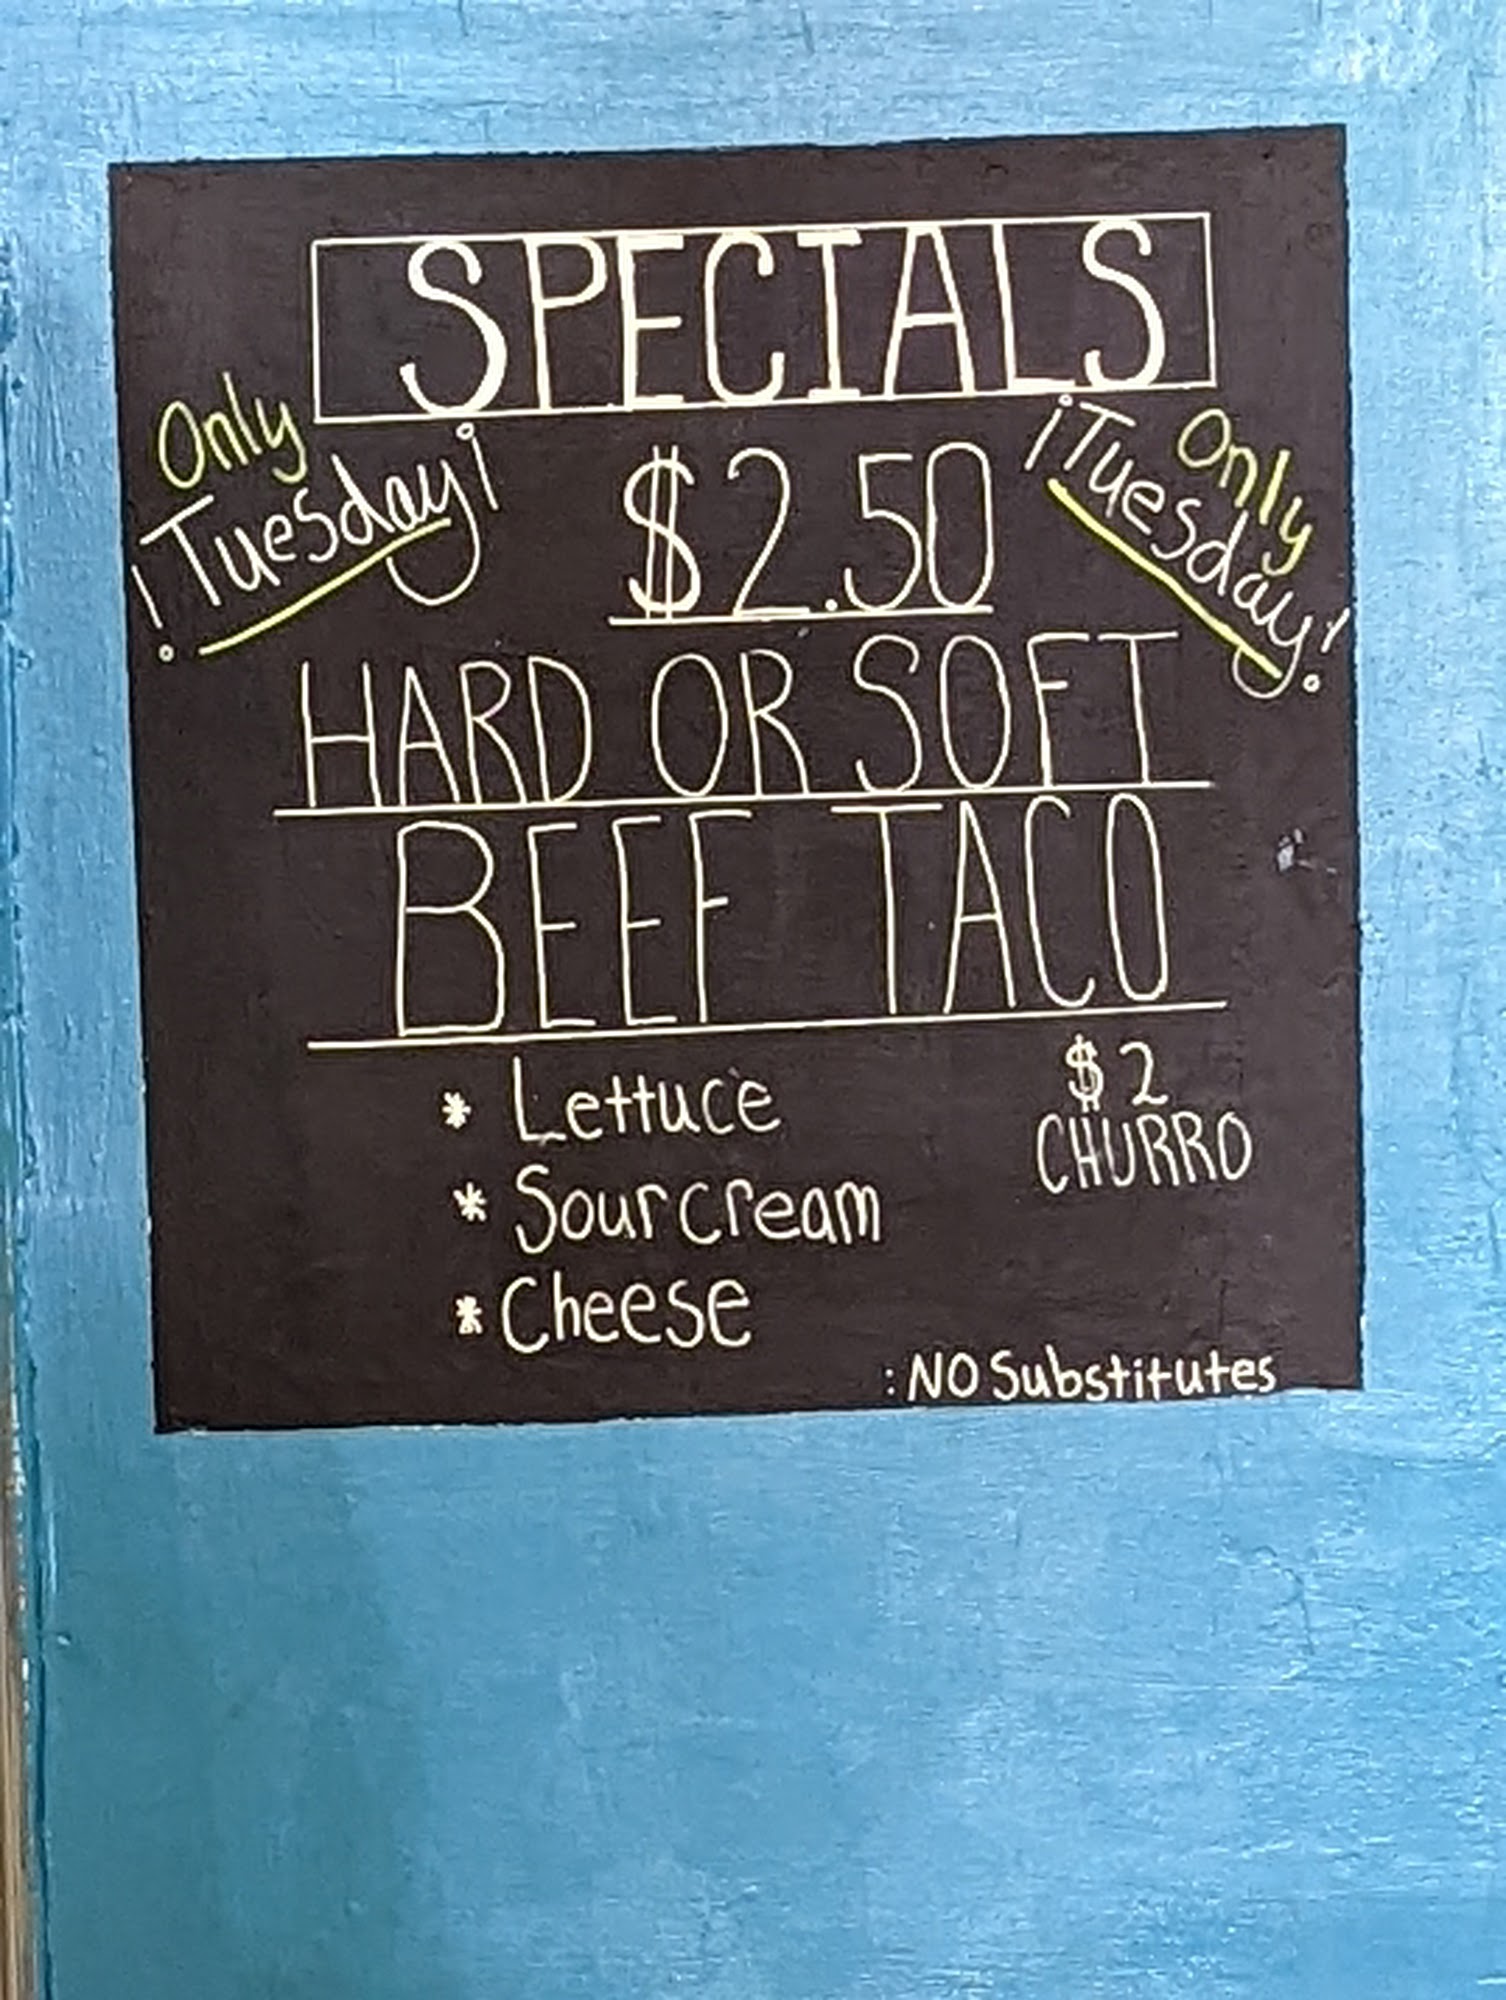 SPECIALS
Only
!Tuesday¡
$2.50
Only
¡Tuesday!
HARD OR SOFT
BEEF TACO
* Lettuce
* Sour cream
* Cheese
$2
CHURRO
:NO Substitutes